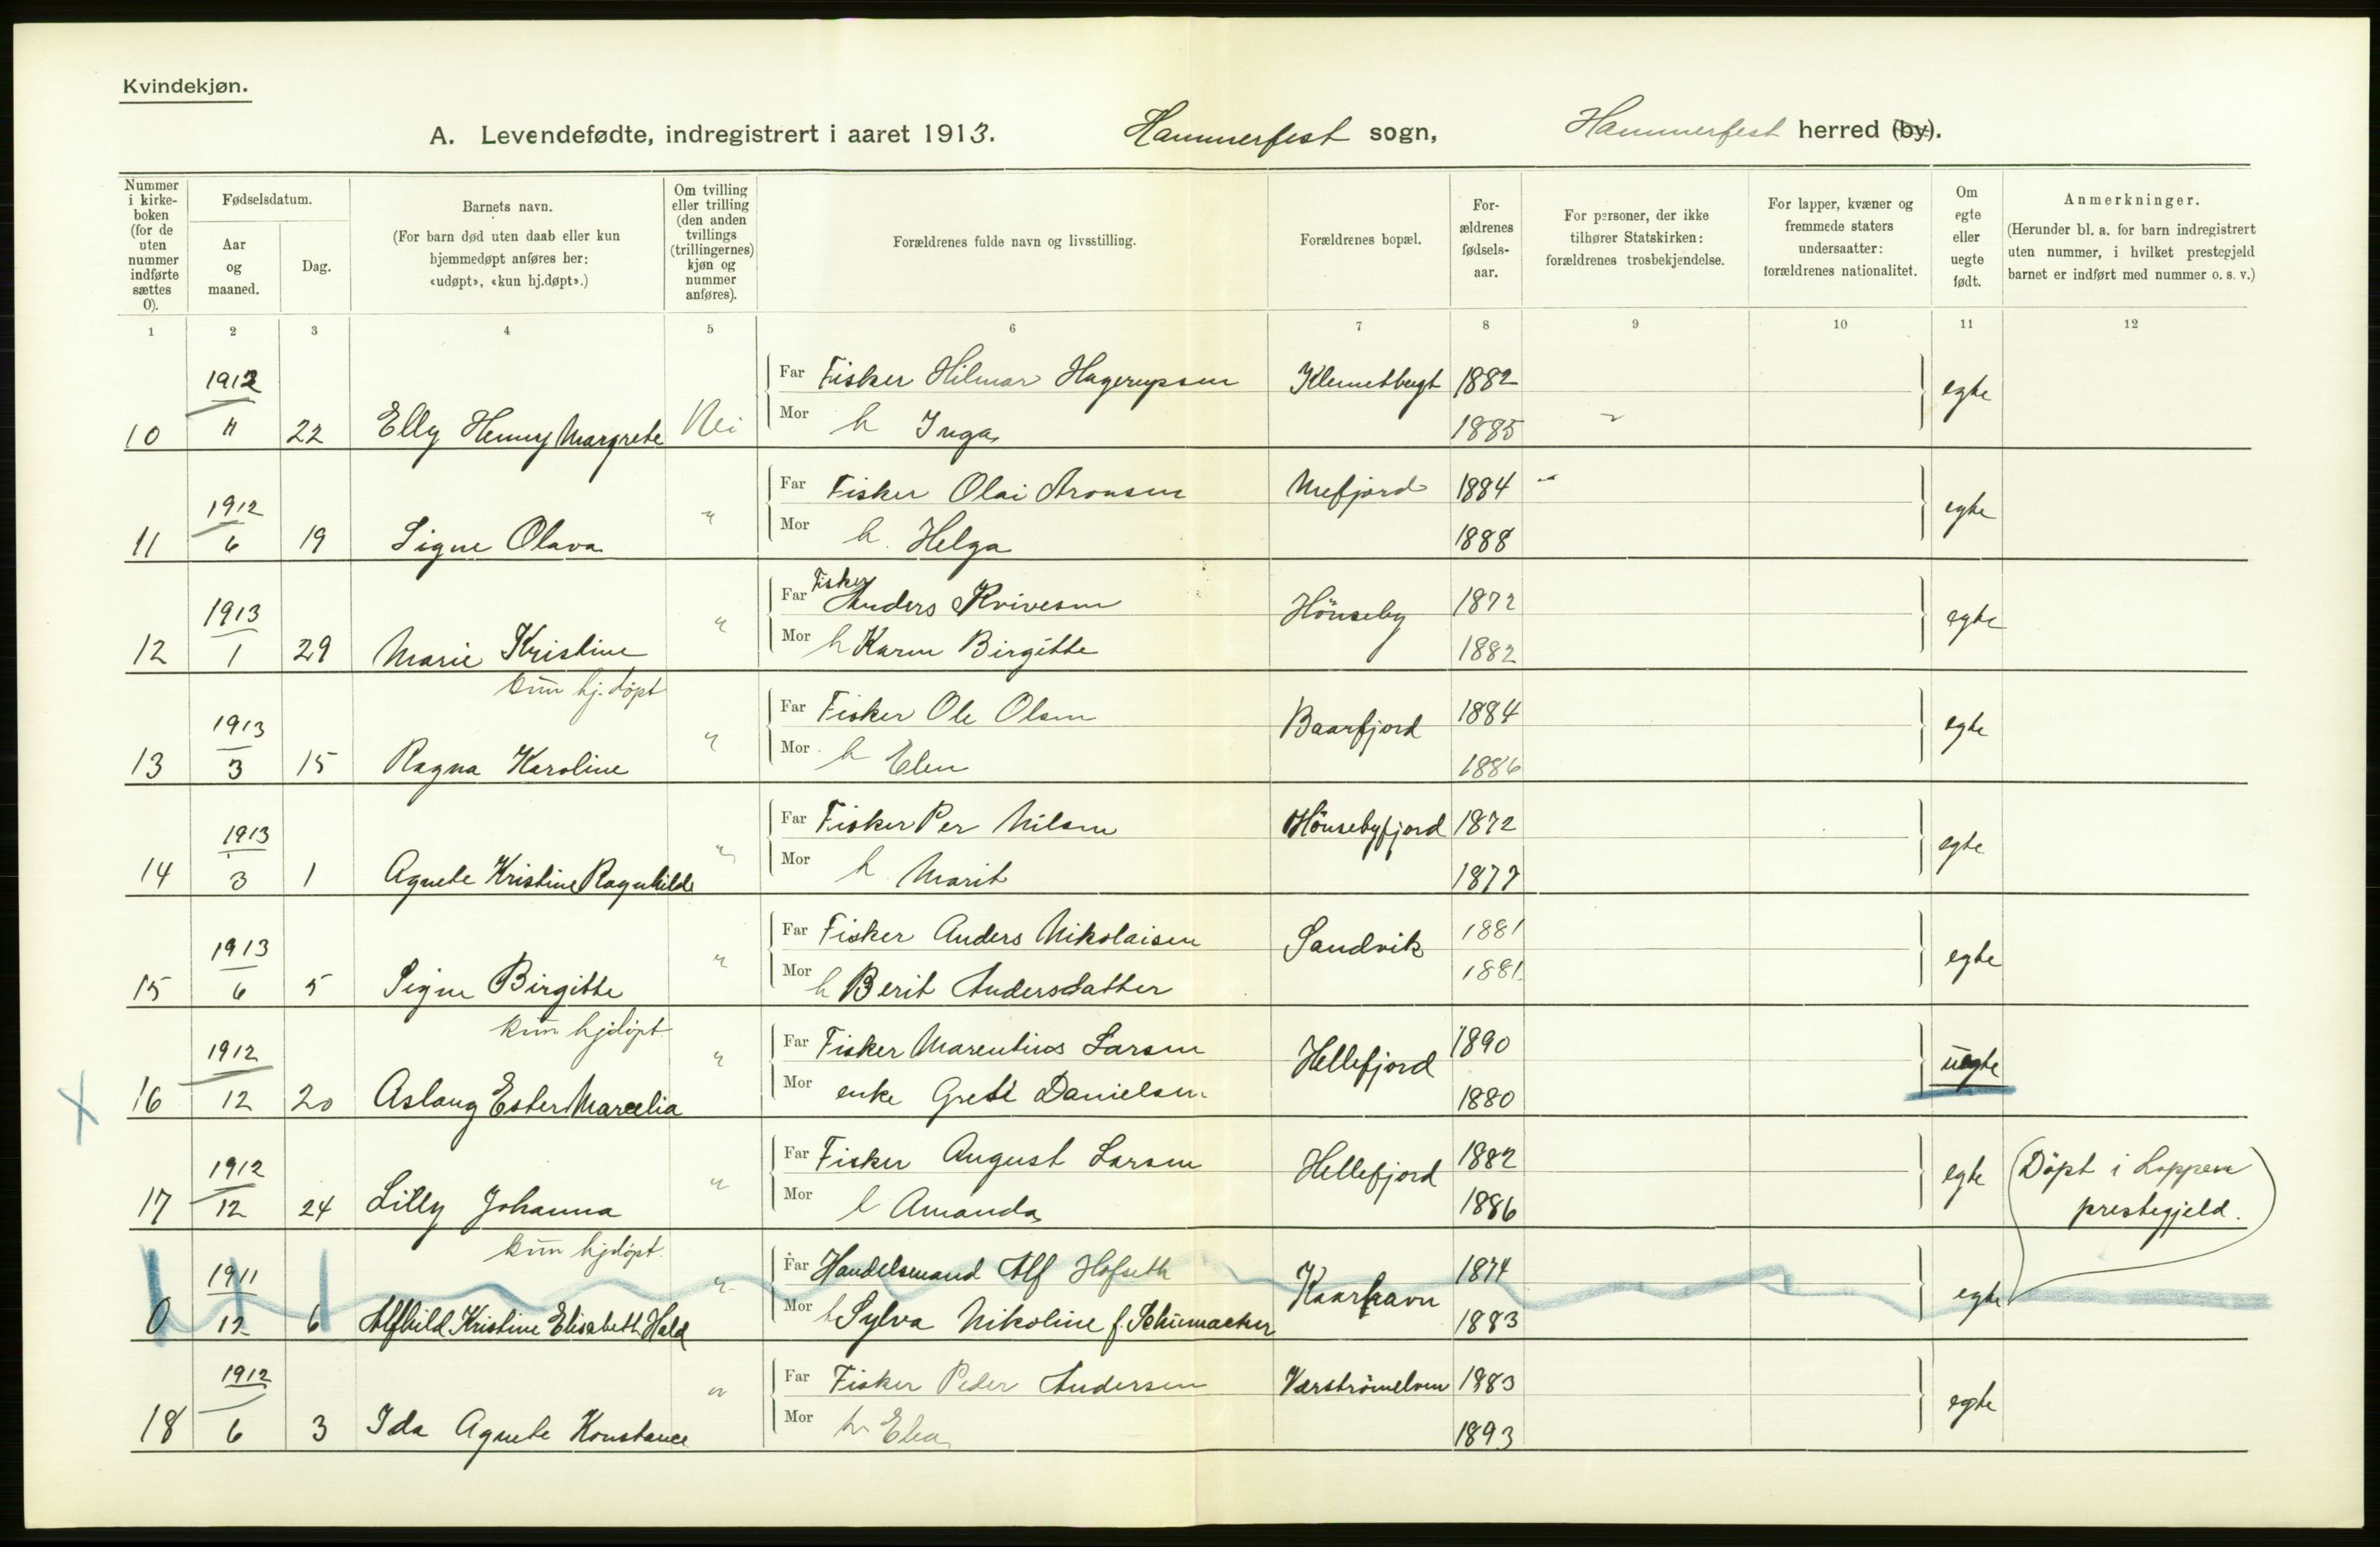 Kvindekjøn.
A. Levendefødte, indregistrert i aaret 1913. Hammerfest sogn, Hammerfest herred (by).
Nummer i kirkeboken (for de uten nummer indførte sættes 0).
Fødselsdatum.
Aar og maaned.
Dag.
Barnets navn.
(For barn død uten daab eller kun hjemmedøpt anføres her: «udøpt», «kun hj.døpt».)
Om tvilling eller trilling (den anden tvillings (trillingernes) kjøn og nummer anføres).
Forældrenes fulde navn og livsstilling.
Forældrenes bopæl.
Forældrenes fødselsaar.
For personer, der ikke tilhører Statskirken: forældrenes trosbekjendelse.
For lapper, kvæner og fremmede staters undersaatter: forældrenes nationalitet.
Om egte eller uegte født.
Anmerkninger.
(Herunder bl. a. for barn indregistrert uten nummer, i hvilket prestegjeld barnet er indført med nummer o. s. v.)
1 2 3 4 5 6 7 8 9 10 11 12
1912 Far Fisker Hilmar Hagerupsen Klemetbugt 1882 egte
10 22 Elly Henny Margrete Nei Mor h Inga 1885
1912 Far Fisker Olai Aronsen Mefjord 1884 " egte
11 6 19 Signe Olava " Mor h. Helga 1888
1913 Far Fisker Anders Kvivesen Hönseby 1872 egte
12 1 29 Marie Kristine " Mor h Karen Birgitte 1882
kun hj. døpt
1913 Far Fisker Ole Olsen Baarfjord 1884 egte
13 3 15 Ragna Karoline " Mor h Elen 1886
1913 Far Fisker Per Nilsen Hönsebyfjord 1872 egte
14 3 1 Agnete Kristine Ragnhild " Mor h. Marit 1877
1913 Far Fisker Anders Nikolaisen Sandvik 1881 egte
15 6 5 Signe Birgitte " Mor h Berit Andersdatter 1881
kun hjdöpt
1912 Far Fisker Marentius Larsen Hellefjord 1890 uegte
16 12 20 Aslaug Ester Marcelia " Mor enke Grete Danielsen 1880
1912 Far Fisker August Larsen Hellefjord 1882 egte (Döpt i Loppen
17 12 24 Lilly Johanna " Mor h Amanda 1886 prestegjeld.)
kun hjdöpt.
1911 Far Handelsmand Alf Hofseth Kaarhavn 1874 egte
0 12 6 Alfhild Kristine Elisabeth Hald " Mor h Sylva Nikoline f. Schumacher 1883
1912 Far Fisker Peder Andersen Varströmelven 1883 egte
18 6 3 Ida Agnete Konstance " Mor h Elea 1893